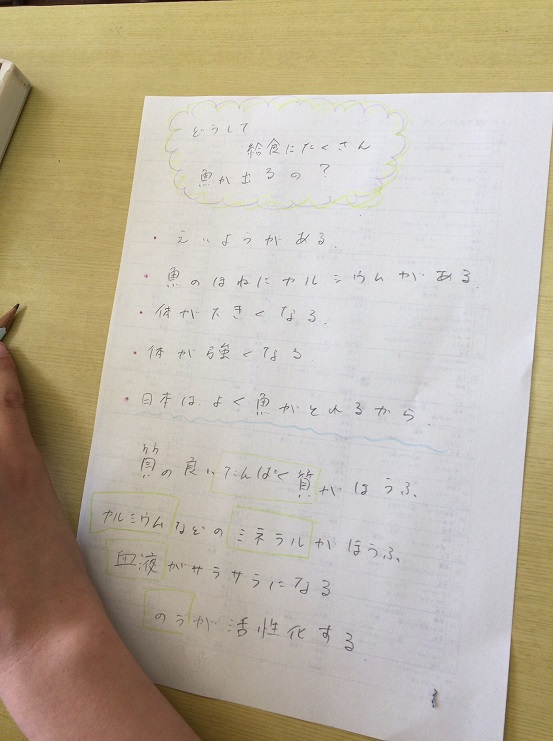 どうして
給食にたくさん
魚が出るの?
・えいようがある.
・魚のほねにカルシウムがある.
・体が大きくなる.
・体が強くなる
・日本は、よく魚がとれるから.
質の良いたんぱく質がほうふ、
カルシウムなどのミネラルがほうふ、
血液がサラサラになる
のうが活性化する.